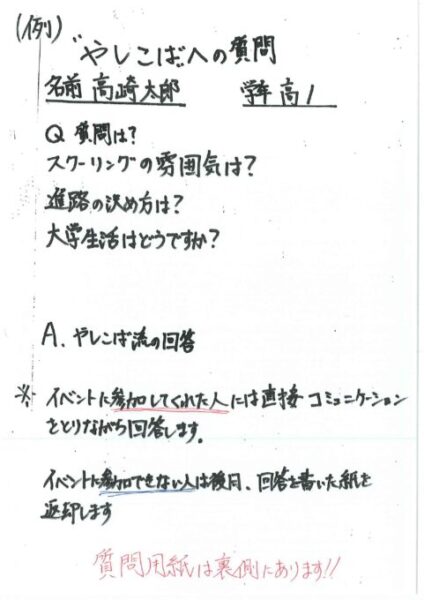 (例)
やしこばへの質問
名前 高崎太郎 学年 高1
Q 質問は?
スクーリングの雰囲気は?
進路の決め方は?
大学生活はどうですか?
A. やしこば流の回答
※ イベントに参加してくれた人には直接コミュニケーション
をとりながら回答します。
イベントに参加できない人は後日、回答を書いた紙を
返却します
質問用紙は裏側にあります!!